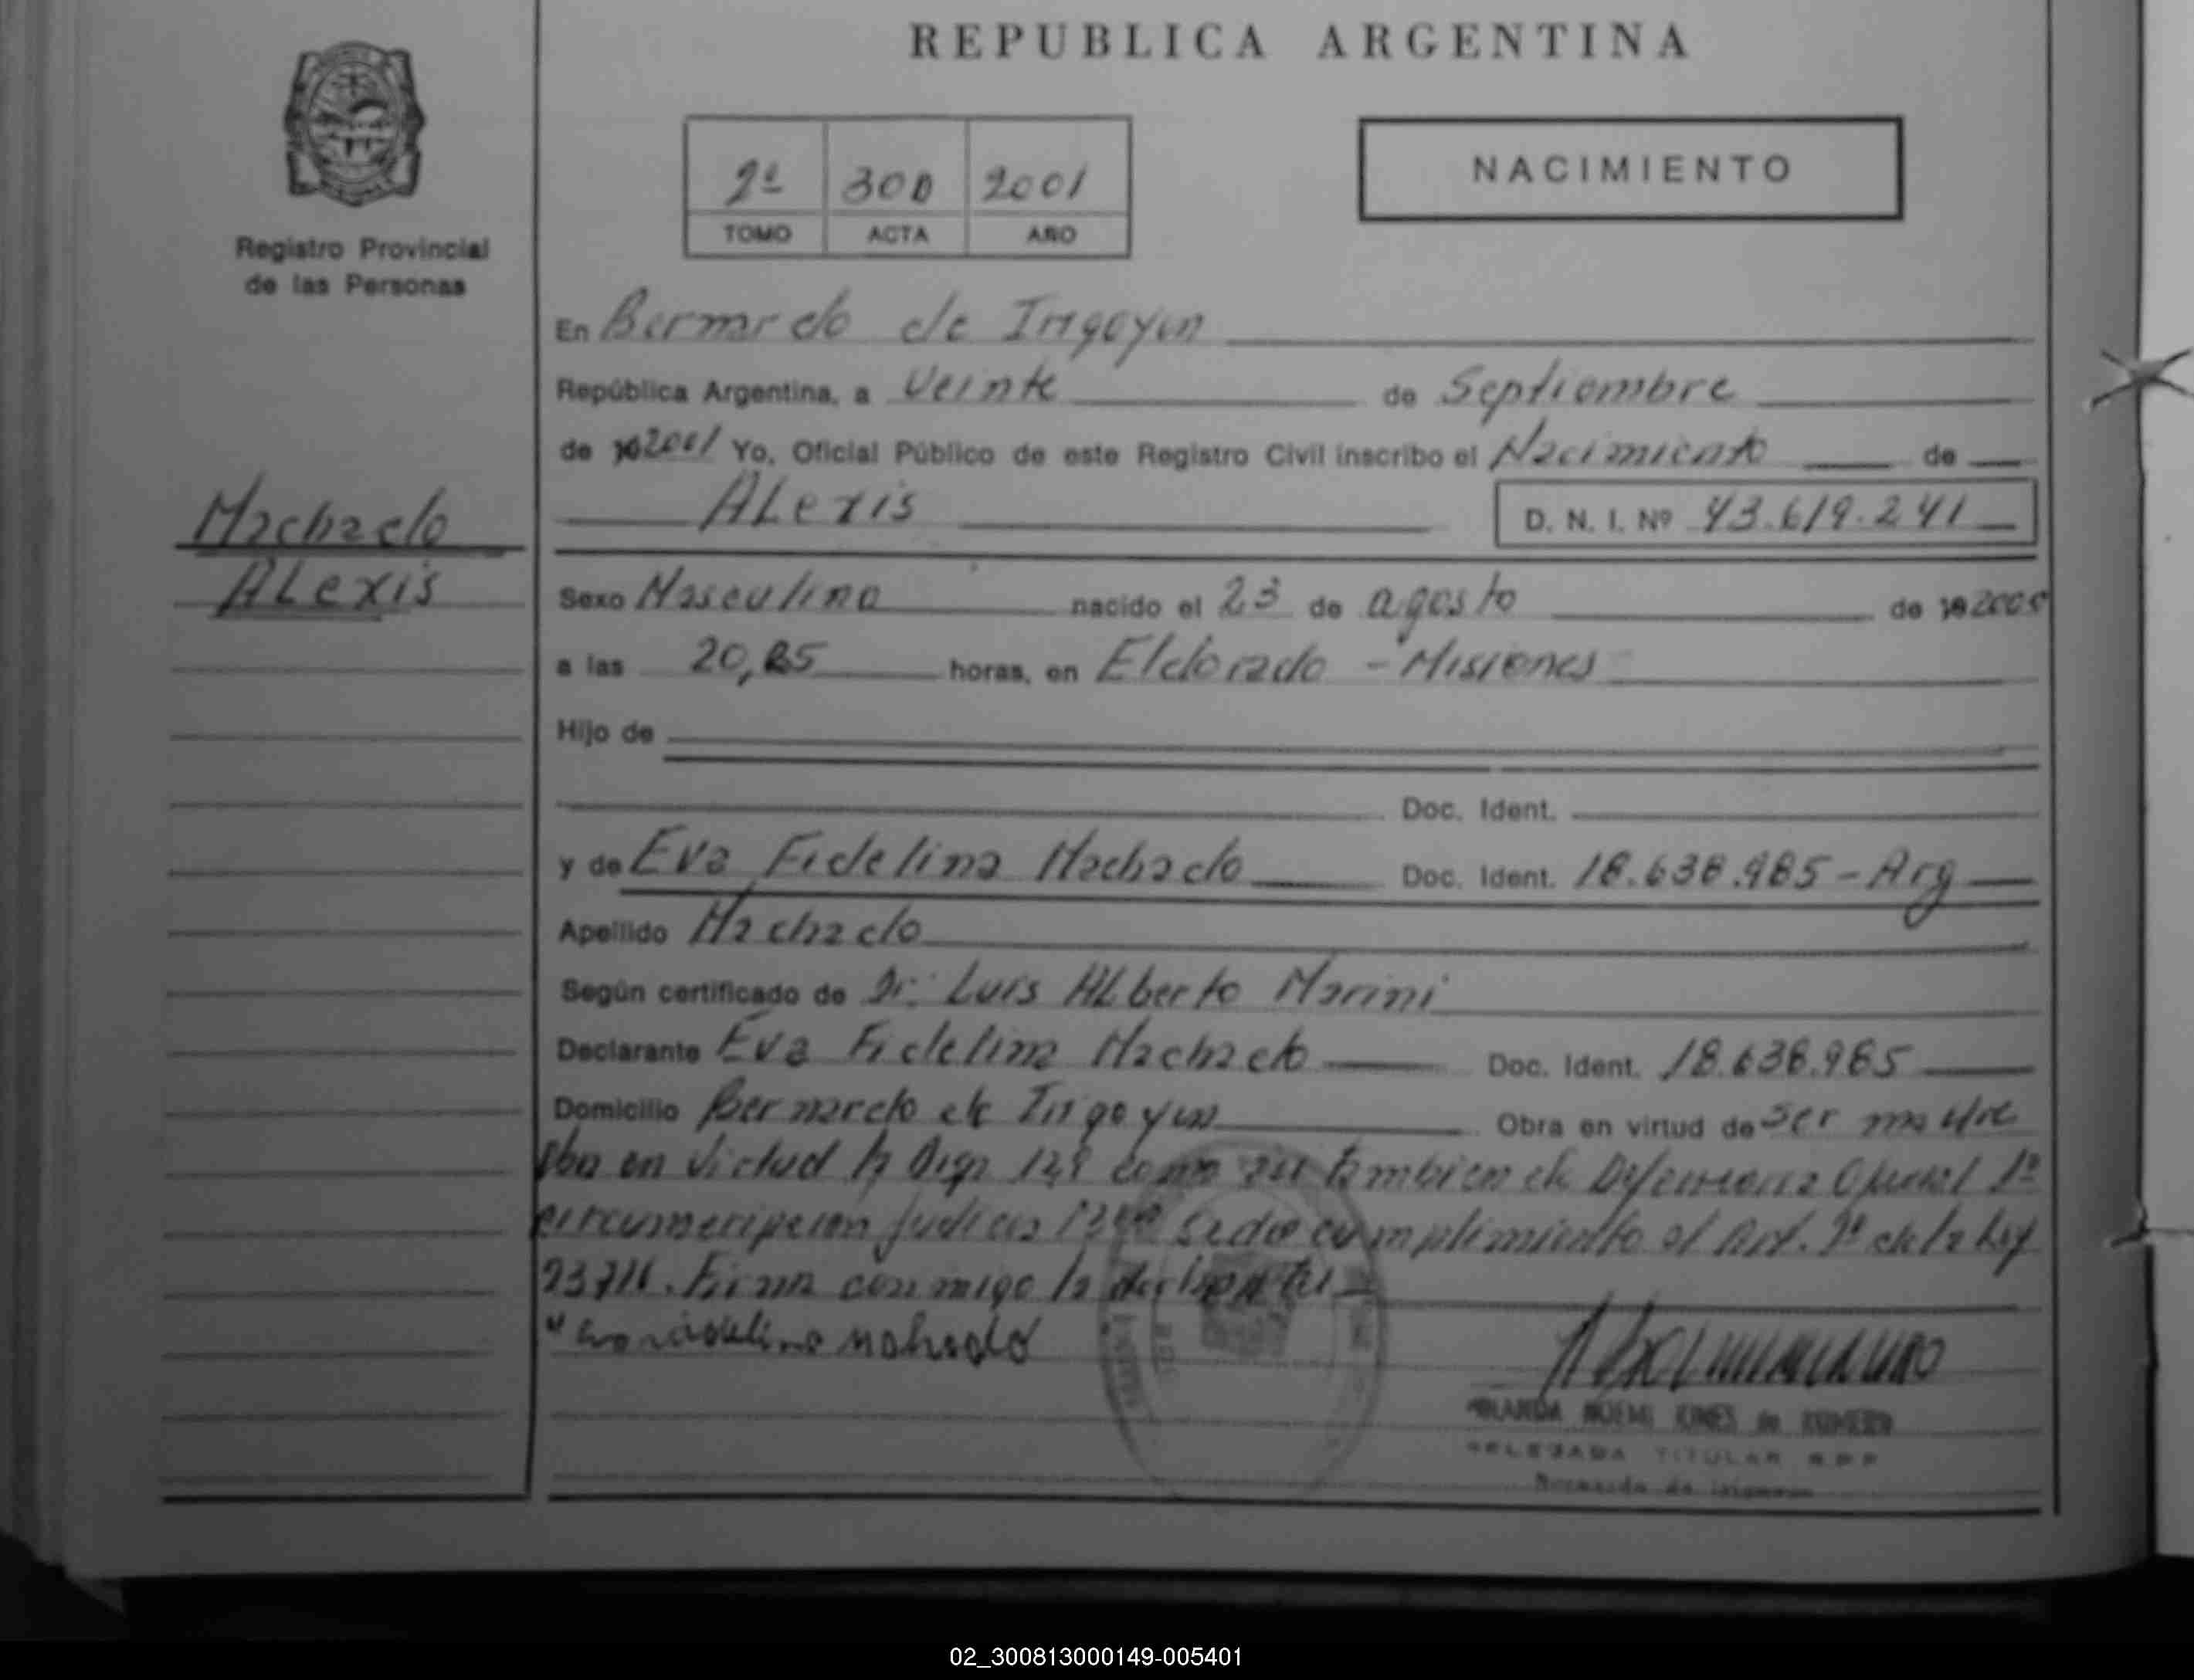 REPUBLICA ARGENTINA
Registro Provincial
de las Personas
2º 300 2001
TOMO ACTA AÑO
NACIMIENTO
En Bernardo de Irigoyen
República Argentina, a Veinte de Septiembre
de 2001 Yo, Oficial Público de este Registro Civil inscribo el Nacimiento de
Alexis D. N. I. Nº 43.619.241
Machado
Alexis
Sexo Masculino nacido el 23 de agosto de
a las horas, en Eldorado - Misiones
Hijo de
Doc. Ident.
y de Eva Fidelina Machado Doc. Ident. 18.638.985 - Arg
Apellido Machado
Según certificado de Dr. Luis Alberto Marini
Declarante Eva Fidelina Machado Doc. Ident. 18.638.985
Domicilio Bernardo de Irigoyen Obra en virtud de ser madre
en virtud la como también de Defensoria Oficial 1º
circunscripcion judicial cumplimiento al Art. de la ley
Firma conmigo la declarante
NOEMI de
DELEGADA TITULAR R.P.P
Bernardo de Irigoyen
02_300813000149-005401